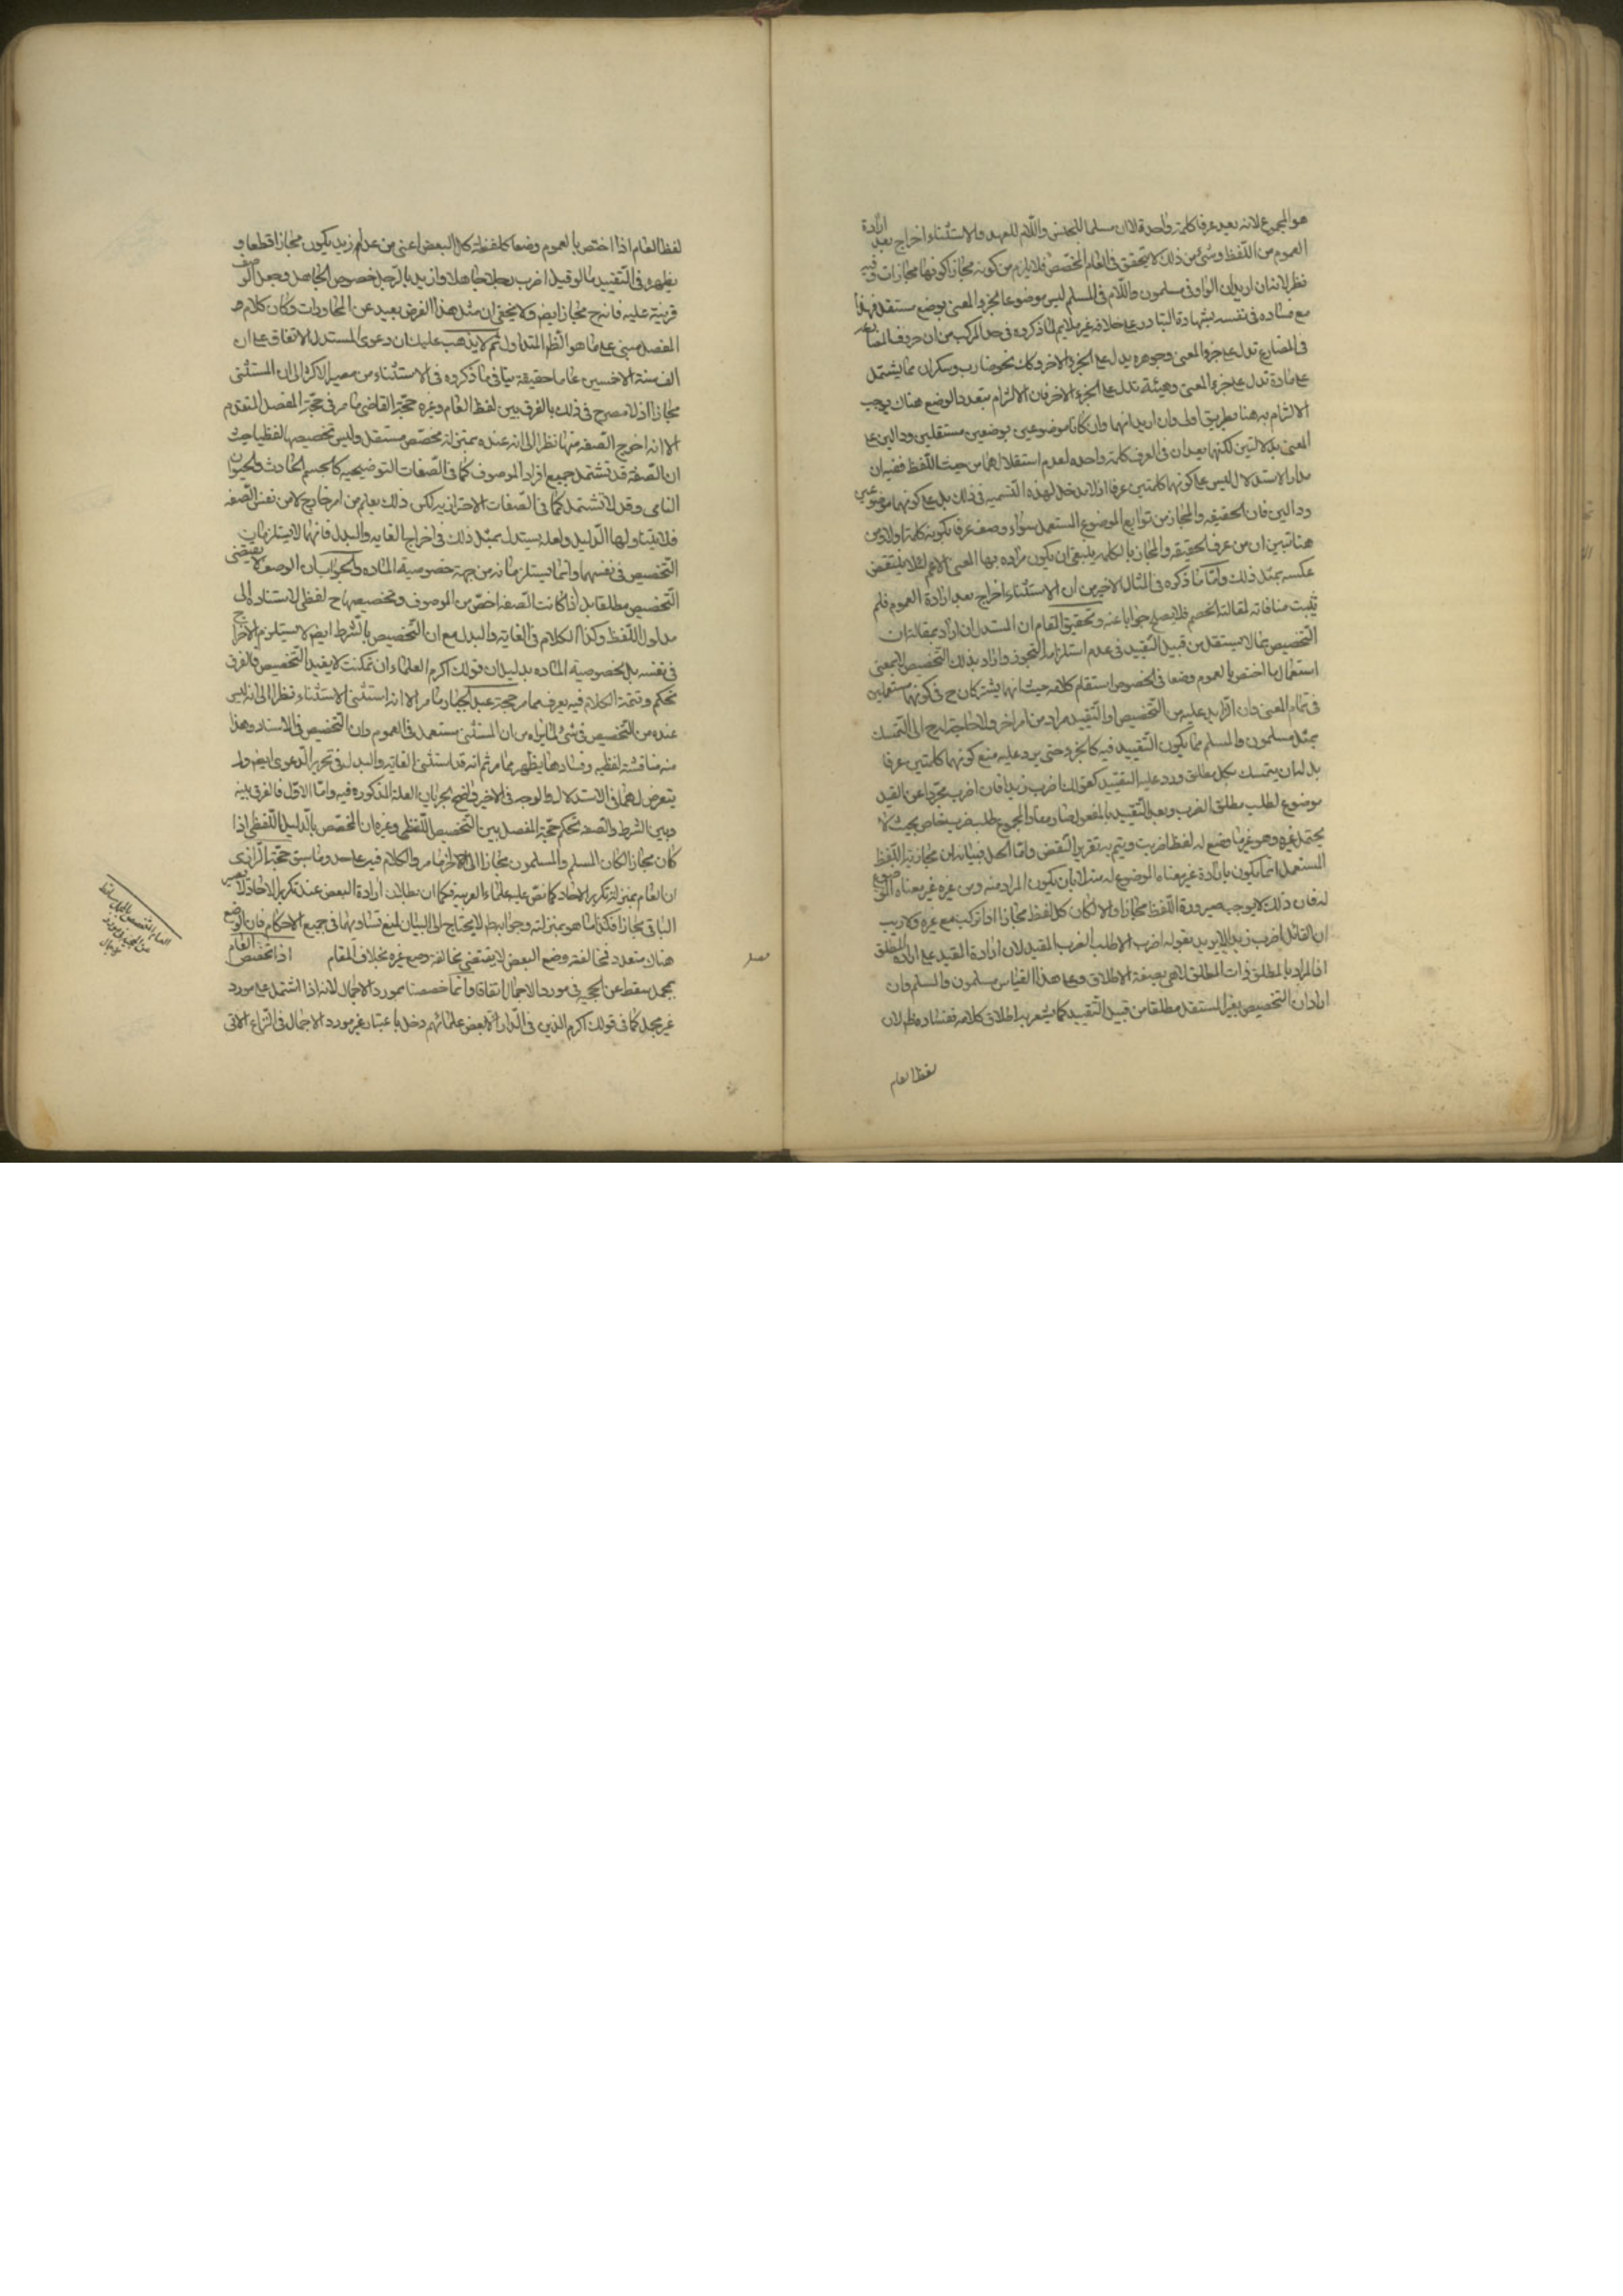 هو المجموع لانه يعد عرفا كلمة واحدة لا ان مسلما للجنس واللام للعهد والاستثناء اخراج بعد ارادة
العموم من اللفظ وشئ من ذلك لا يتحقق فى العام المخصص فلا يلزم من كونه مجازا كونها مجازات وفيه
نظر لانه ان اريد ان الواو فى مسلمون واللام فى المسلم ليس موضوعا لجزء المعنى بوضع مستقل فهذا
مع فساده فى نفسه بشهادة التبادر على خلافه غير ملايم لما ذكروه فى حد المركب من ان حروف المضارعة
فى المضارع تدل على جزء المعنى وجوهره يدل على الجزء الاخر وكك نحو ضارب وسكران مما يشتمل
على مادة تدل على جزء المعنى وهيئة تدل على الجزء الاخر فان الالتزام بتعدد الوضع هناك يوجب
الالتزام به هنا بطريق اولى وان اريد انهما وان كانا موضوعين بوضعين مستقلين ودالين على
المعنى بدلالتين لكنهما يعدان فى العرف كلمة واحدة لعدم استقلالهما من حيث اللفظ ففيه ان
مدار الاستدلال ليس على كونهما كلمتين عرفا اذ لا مدخل لهذه التسمية فى ذلك بل على كونهما موضوعين
ودالين فان الحقيقة والمجاز من توابع الموضوع المستعمل سواء وصف عرفا بكونه كلمة اولا ومن
هنا تبين ان من عرف الحقيقة والمجاز بالكلمة ينبغى ان يكون مراده بها المعنى الاعم لئلا ينتقض
عكسه بمثل ذلك واما ما ذكروه فى المثال الاخير من ان الاستثناء اخراج بعد ارادة العموم فلم
يثبت منافاته لمقالة الخصم فلا يصلح جوابا عنه وتحقيق المقام ان المستدل ان اراد بمقالته ان
التخصيص بما لا يستقل من قبيل التقييد فى عدم استلزامه التجوز واراد بذلك التخصيص لا بمعنى
استعمال ما اختص بالعموم وضعا فى الخصوص استقام كلامه حيث انهما يشتركان ح فى كونهما مستعملين
فى تمام المعنى وان الزايد عليه من التخصيص او التقييد مراد من امر اخر ولا حاجة له ح الى التمسك
بمثل مسلمون والمسلم مما يكون التقييد فيه كالجزء حتى يرد عليه منع كونهما كلمتين عرفا
بل له ان يتمسك بكل مطلق ورد عليه التقييد كقولك اضرب زيدا فان اضرب مجردا عن القيد
موضوع لطلب مطلق الضرب وبعد التقييد بالمفعول صار مفاد المجموع طلب ضرب خاص بحيث لا
يحتمل غيره وهو غير ما وضع له لفظ اضرب ويتم به تقرير النقض واما الحل فبيانه ان مجازية اللفظ
المستعمل انما يكون بارادة غير معناه الموضوع له منه لا بان يكون المراد منه ومن غيره غير معناه الموضوع
له فان ذلك لا يوجب صيرورة اللفظ مجازا والا لكان كل لفظ مجازا اذا تركب مع غيره ولا ريب
ان القائل اضرب زيدا لا يريد بقوله اضرب الا طلب الضرب المقيد لان ارادة القيد على ارادة المطلق
اذ المراد بالمطلق ذات المطلق لا هى بصفة الاطلاق وعلى هذا القياس مسلمون والمسلم وان
اراد ان التخصيص بغير المستقل مطلقا من قبيل التقييد كما يشعر به اطلاق كلامه ففساده ظ لان
لفظ العام
لفظ العام اذا اختص بالعموم وضعا كلفظة كل البعض اعنى من عدا زيد يكون مجازا قطعا و
يظهر فى التقييد ما لو قيل اضرب رجلا جاهلا واريد بالرجل خصوص الجاهل وجعل الوصف
قرينة عليه فانه ح مجاز ايضا ولا يخفى ان مثل هذا الفرض بعيد عن المحاورات وكان كلام هذا
المفصل مبنى على ما هو الظ المتداول ثم لا يذهب عليك ان دعوى المستدل الاتفاق على ان
الف سنة الا خمسين عاما حقيقة ينافى ما ذكروه فى الاستثناء من مصير الاكثر الى ان المستثنى
مجاز اذ لا مصرح فى ذلك بالفرق بين لفظ العام وغيره حجة القاضى ما مر فى حجة المفصل المتقدم
الا انه اخرج الصفة منها نظرا الى انه عنده بمنزلة مخصص مستقل وليس تخصيصها لفظيا حيث
ان الصفة قد تشتمل جميع افراد الموصوف كما فى الصفات التوضيحية كالجسم الحادث والحيوان
النامى وقد لا تشتمل كما فى الصفات الاحترازية لكن ذلك يعلم من امر خارج لا من نفس الصفة
فلا يتناولها الدليل ولعله يستدل بمثل ذلك فى اخراج الغاية والبدل فانهما لا يستلزمان
التخصيص فى نفسهما وانما يستلزمانه من جهة خصوصية المادة والجواب ان الوصف لا يقتضى
التخصيص مطلقا بل اذا كانت الصفة اخص من الموصوف وتخصيصها ح لفظى لاستناده الى
مدلول اللفظ وكذا الكلام فى الغاية والبدل مع ان التخصيص بالشرط ايضا لا يستلزم الاخراج
فى نفسه بل بخصوصية المادة بدليل ان قولك اكرم العلماء ان تمكنت لا يفيد التخصيص فالفرق
تحكم وتتمة الكلام فيه يعرف مما مر حجة عبد الجبار ما مر الا انه استثنى الاستثناء نظرا الى انه ليس
عنده من التخصيص فى شئ لما يراه من ان المستثنى مستعمل فى العموم وان التخصيص فى الاسناد وهذا
منه مناقشة لفظية وفسادها يظهر مما مر ثم انه قد استثنى الغاية والبدل فى تحرير الدعوى ايضا ولم
يتعرض لهما فى الاستدلال والوجه فى الاخير واضح لجريان العلة المذكورة فيه واما الاول فالفرق بينه
وبين الشرط والصفة تحكم حجة المفصل بين التخصيص اللفظى وغيره ان المخصص بالدليل اللفظى اذا
كان مجازا لكان المسلم والمسلمون مجازا الى اخر ما مر والكلام فيه على حد ما سبق حجة الرازى
ان العام بمنزلة تكرير الاحاد كما نص عليه علماء العربية فكما ان بطلان ارادة البعض عند تكرير الاحاد لا يصير
الباقى مجازا فكذا ما هو بمنزلته وجوابه لا يحتاج الى البيان لمنع تساويهما فى جميع الاحكام فان الوضع
هناك متعدد فمخالفة وضع البعض لا يقتضى مخالفة وضع غيره بخلاف المقام اذا تخصص العام
بمجمل سقط عن الحجية فى مورد الاجمال اتفاقا وانما خصصنا بمورد الاجمال لانه اذا اشتمل على مورد
غير مجمل كما فى قولك اكرم الذين فى الدار الا بعض علمائهم دخل باعتبار غير مورد الاجمال فى النزاع الاتى
فصل
العام المخصص بالمجمل ساقط
عن الحجية فى مورد
الاجمال